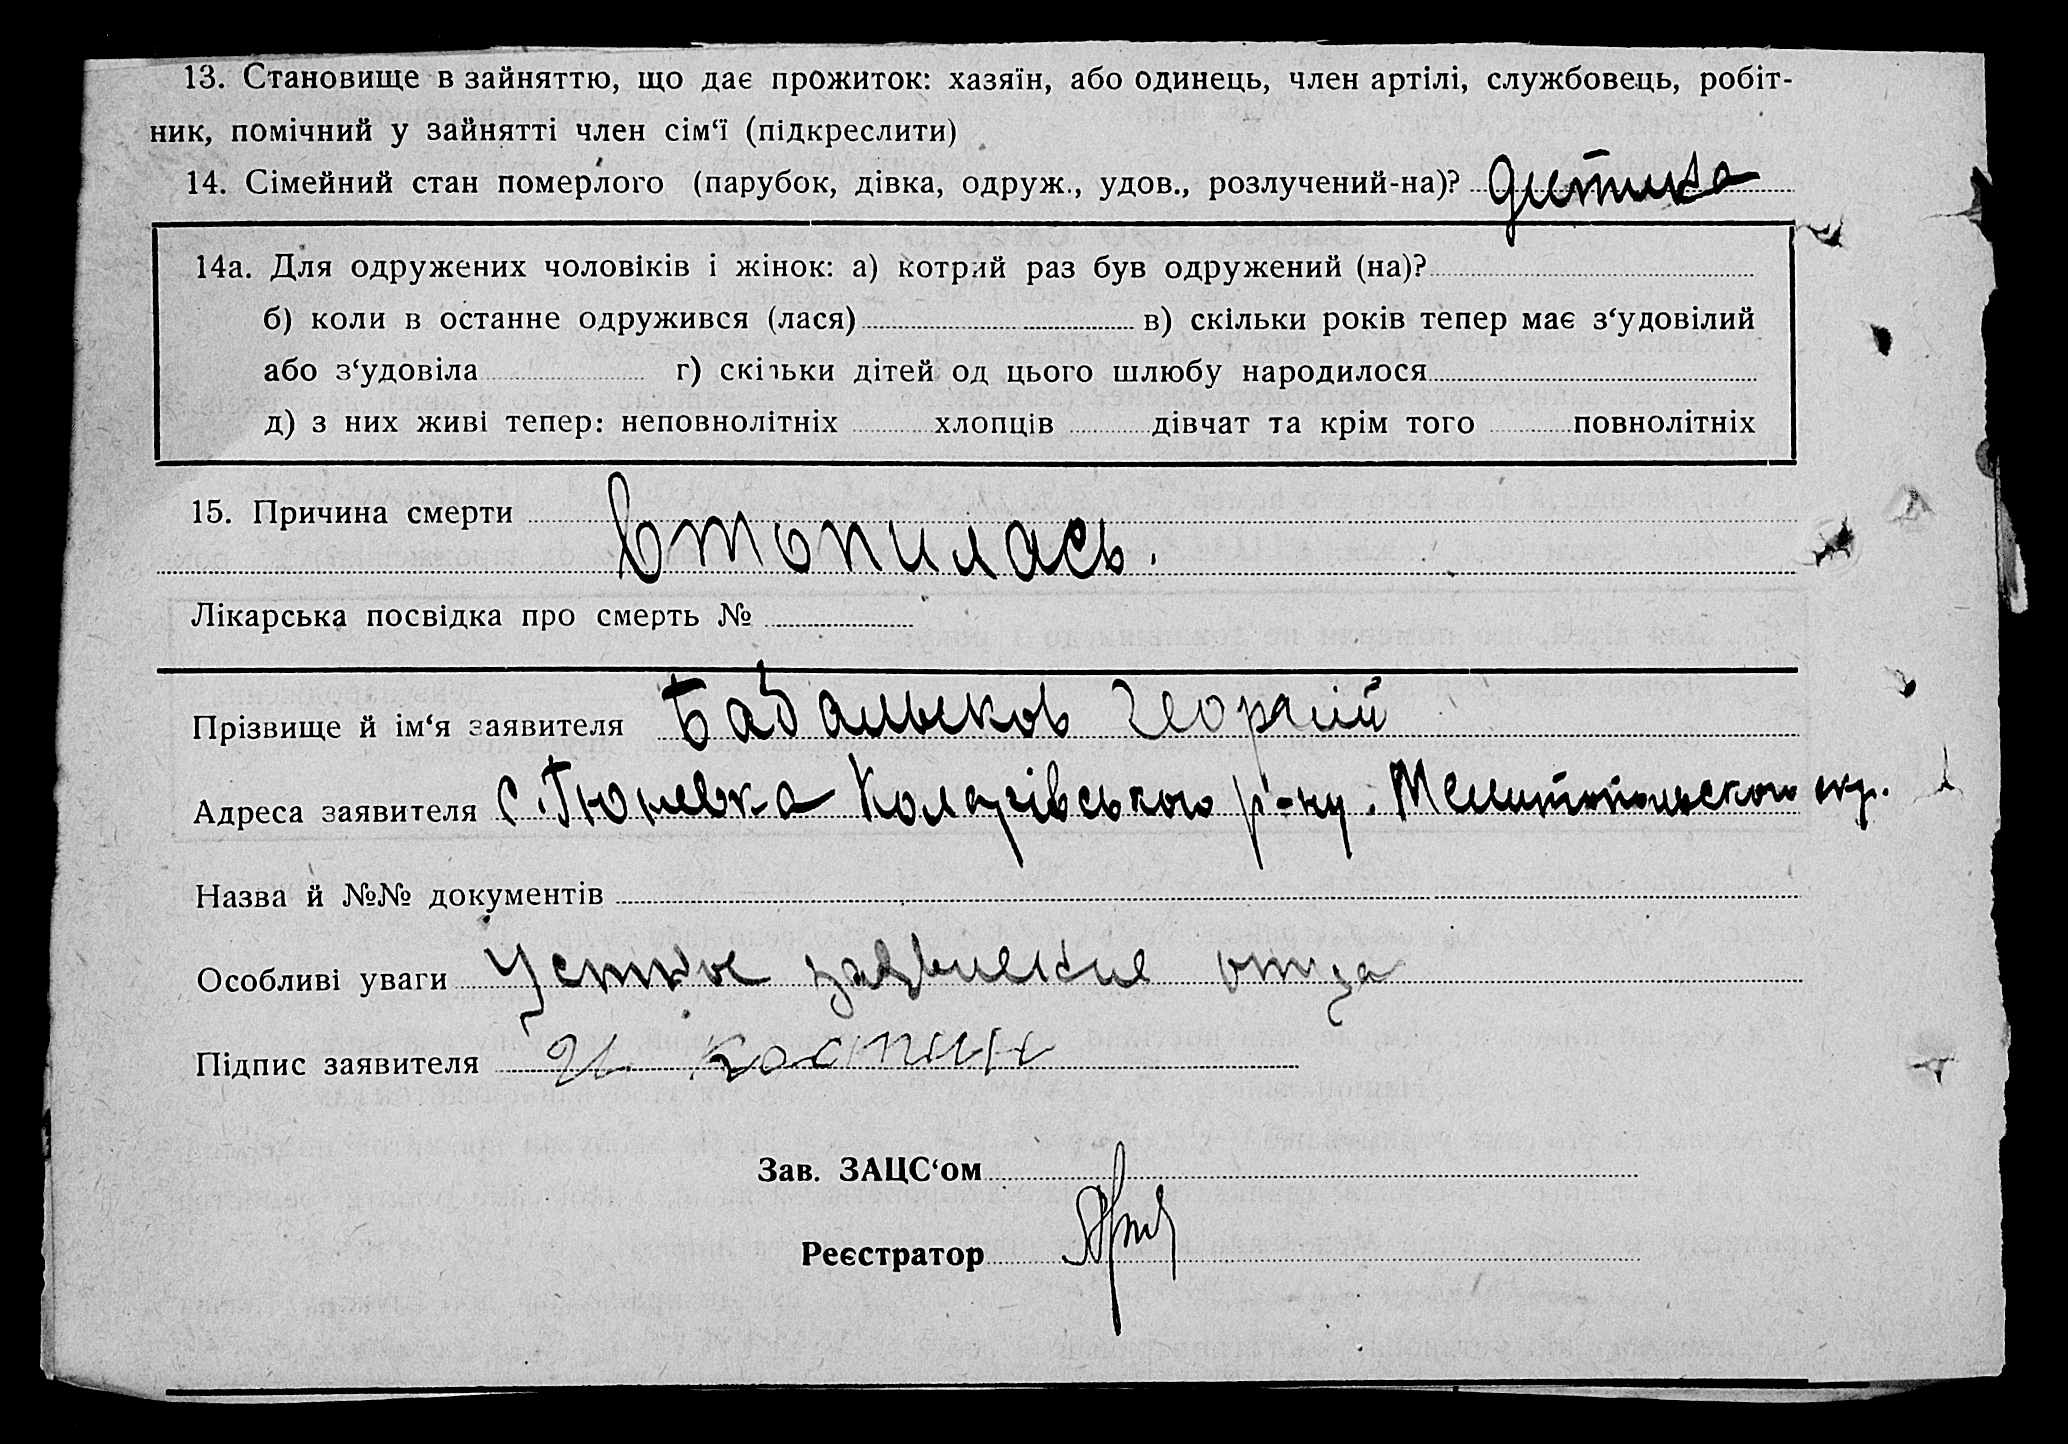 13. Становище в зайняттю, що дає прожиток: хазяїн, або одинець, член артілі, службовець, робіт-
ник, помічний у зайнятті член сім‘ї (підкреслити)
14. Сімейний стан померлого (парубок, дівка, одруж., удов., розлучений-на)? дитина
14а. Для одружених чоловіків і жінок: а) котрий раз був одружений (на)?
б) коли в останне одружився (лася) в) скільки років тепер має з‘удовілий
або з‘удовіла г) скільки дітей од цього шлюбу народилося
д) з них живі тепер: неповнолітніх хлопців дівчат та крім того повнолітніх
15. Причина смерти
Втопилась.
Лікарська посвідка про смерть №
Прізвище й ім‘я заявителя Георгій
Адреса заявителя с. Гюневка р-ну. Мелитопольского окр.
Назва й №№ документів
Особливі уваги Устное заявление отца
Підпис заявителя
Зав. ЗАЦС‘ом
Реєстратор